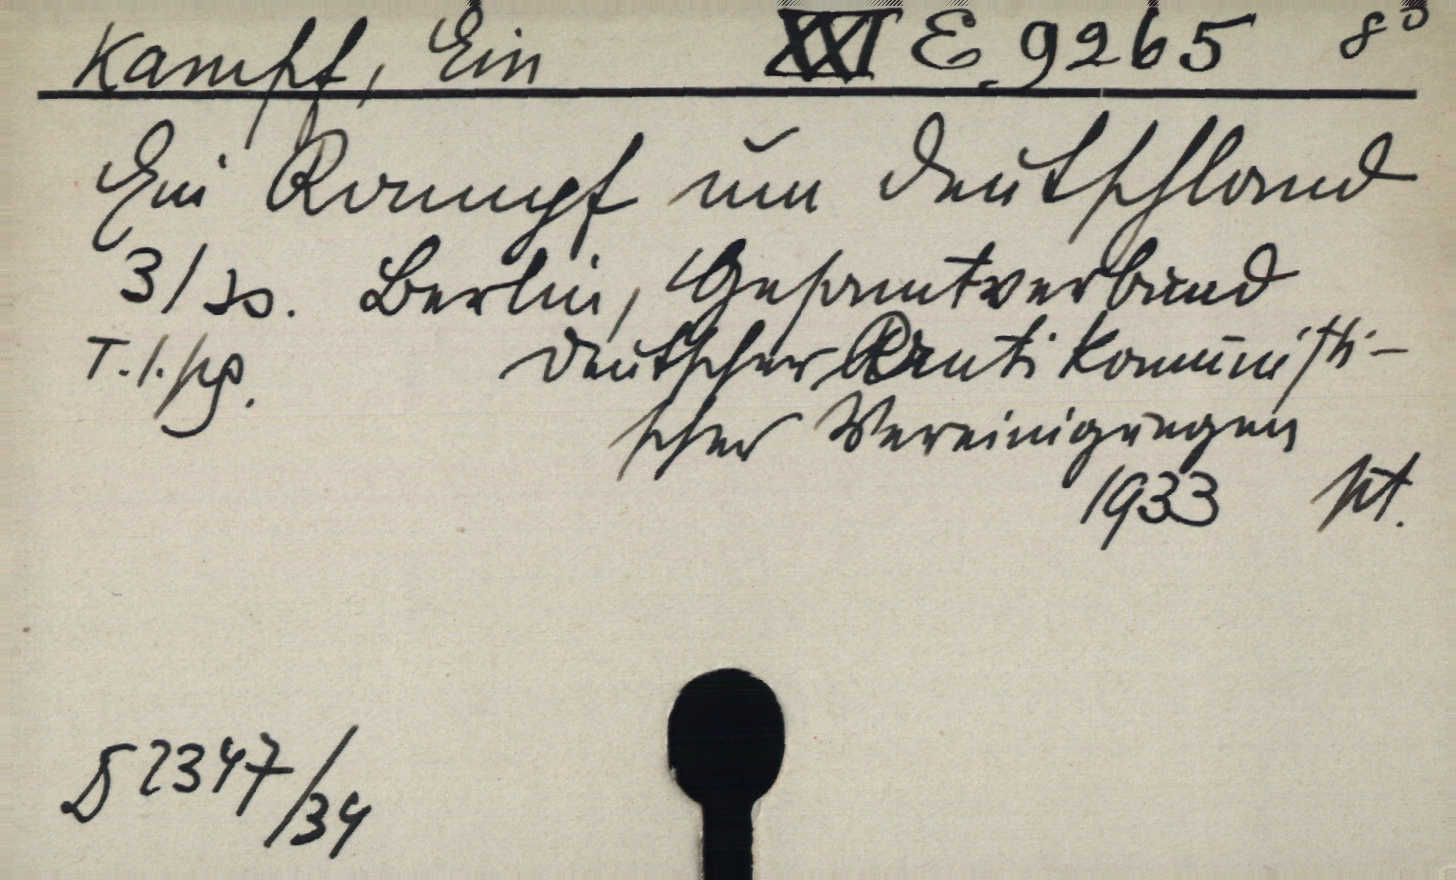 Kampf, Ein XXI E. 9265 8°
Ein Kampf um Deutschland
3/ Berlin, Gesamtverband
T. 1. deutscher Antikommunisti-
scher Vereinigungen
1933
2347/34